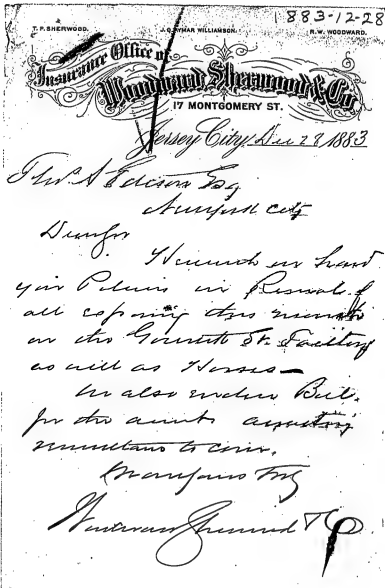 1883-12-28
T. P. SHERWOOD. J. Q. AYMAR WILLIAMSON. R. W. WOODWARD.
Insurance Office of
Woodward, Sherwood & Co.
17 MONTGOMERY ST.
Jersey City, Dec 28 1883
Thos A Edison Esq
New York City
Dear Sir
Herewith we hand
you Policies in Renewal of
all expiring this month
on the Goerck St Factory
as well as Horses —
We also enclose Bill
for the amts
to
Yours Truly
Woodward Sherwood & Co